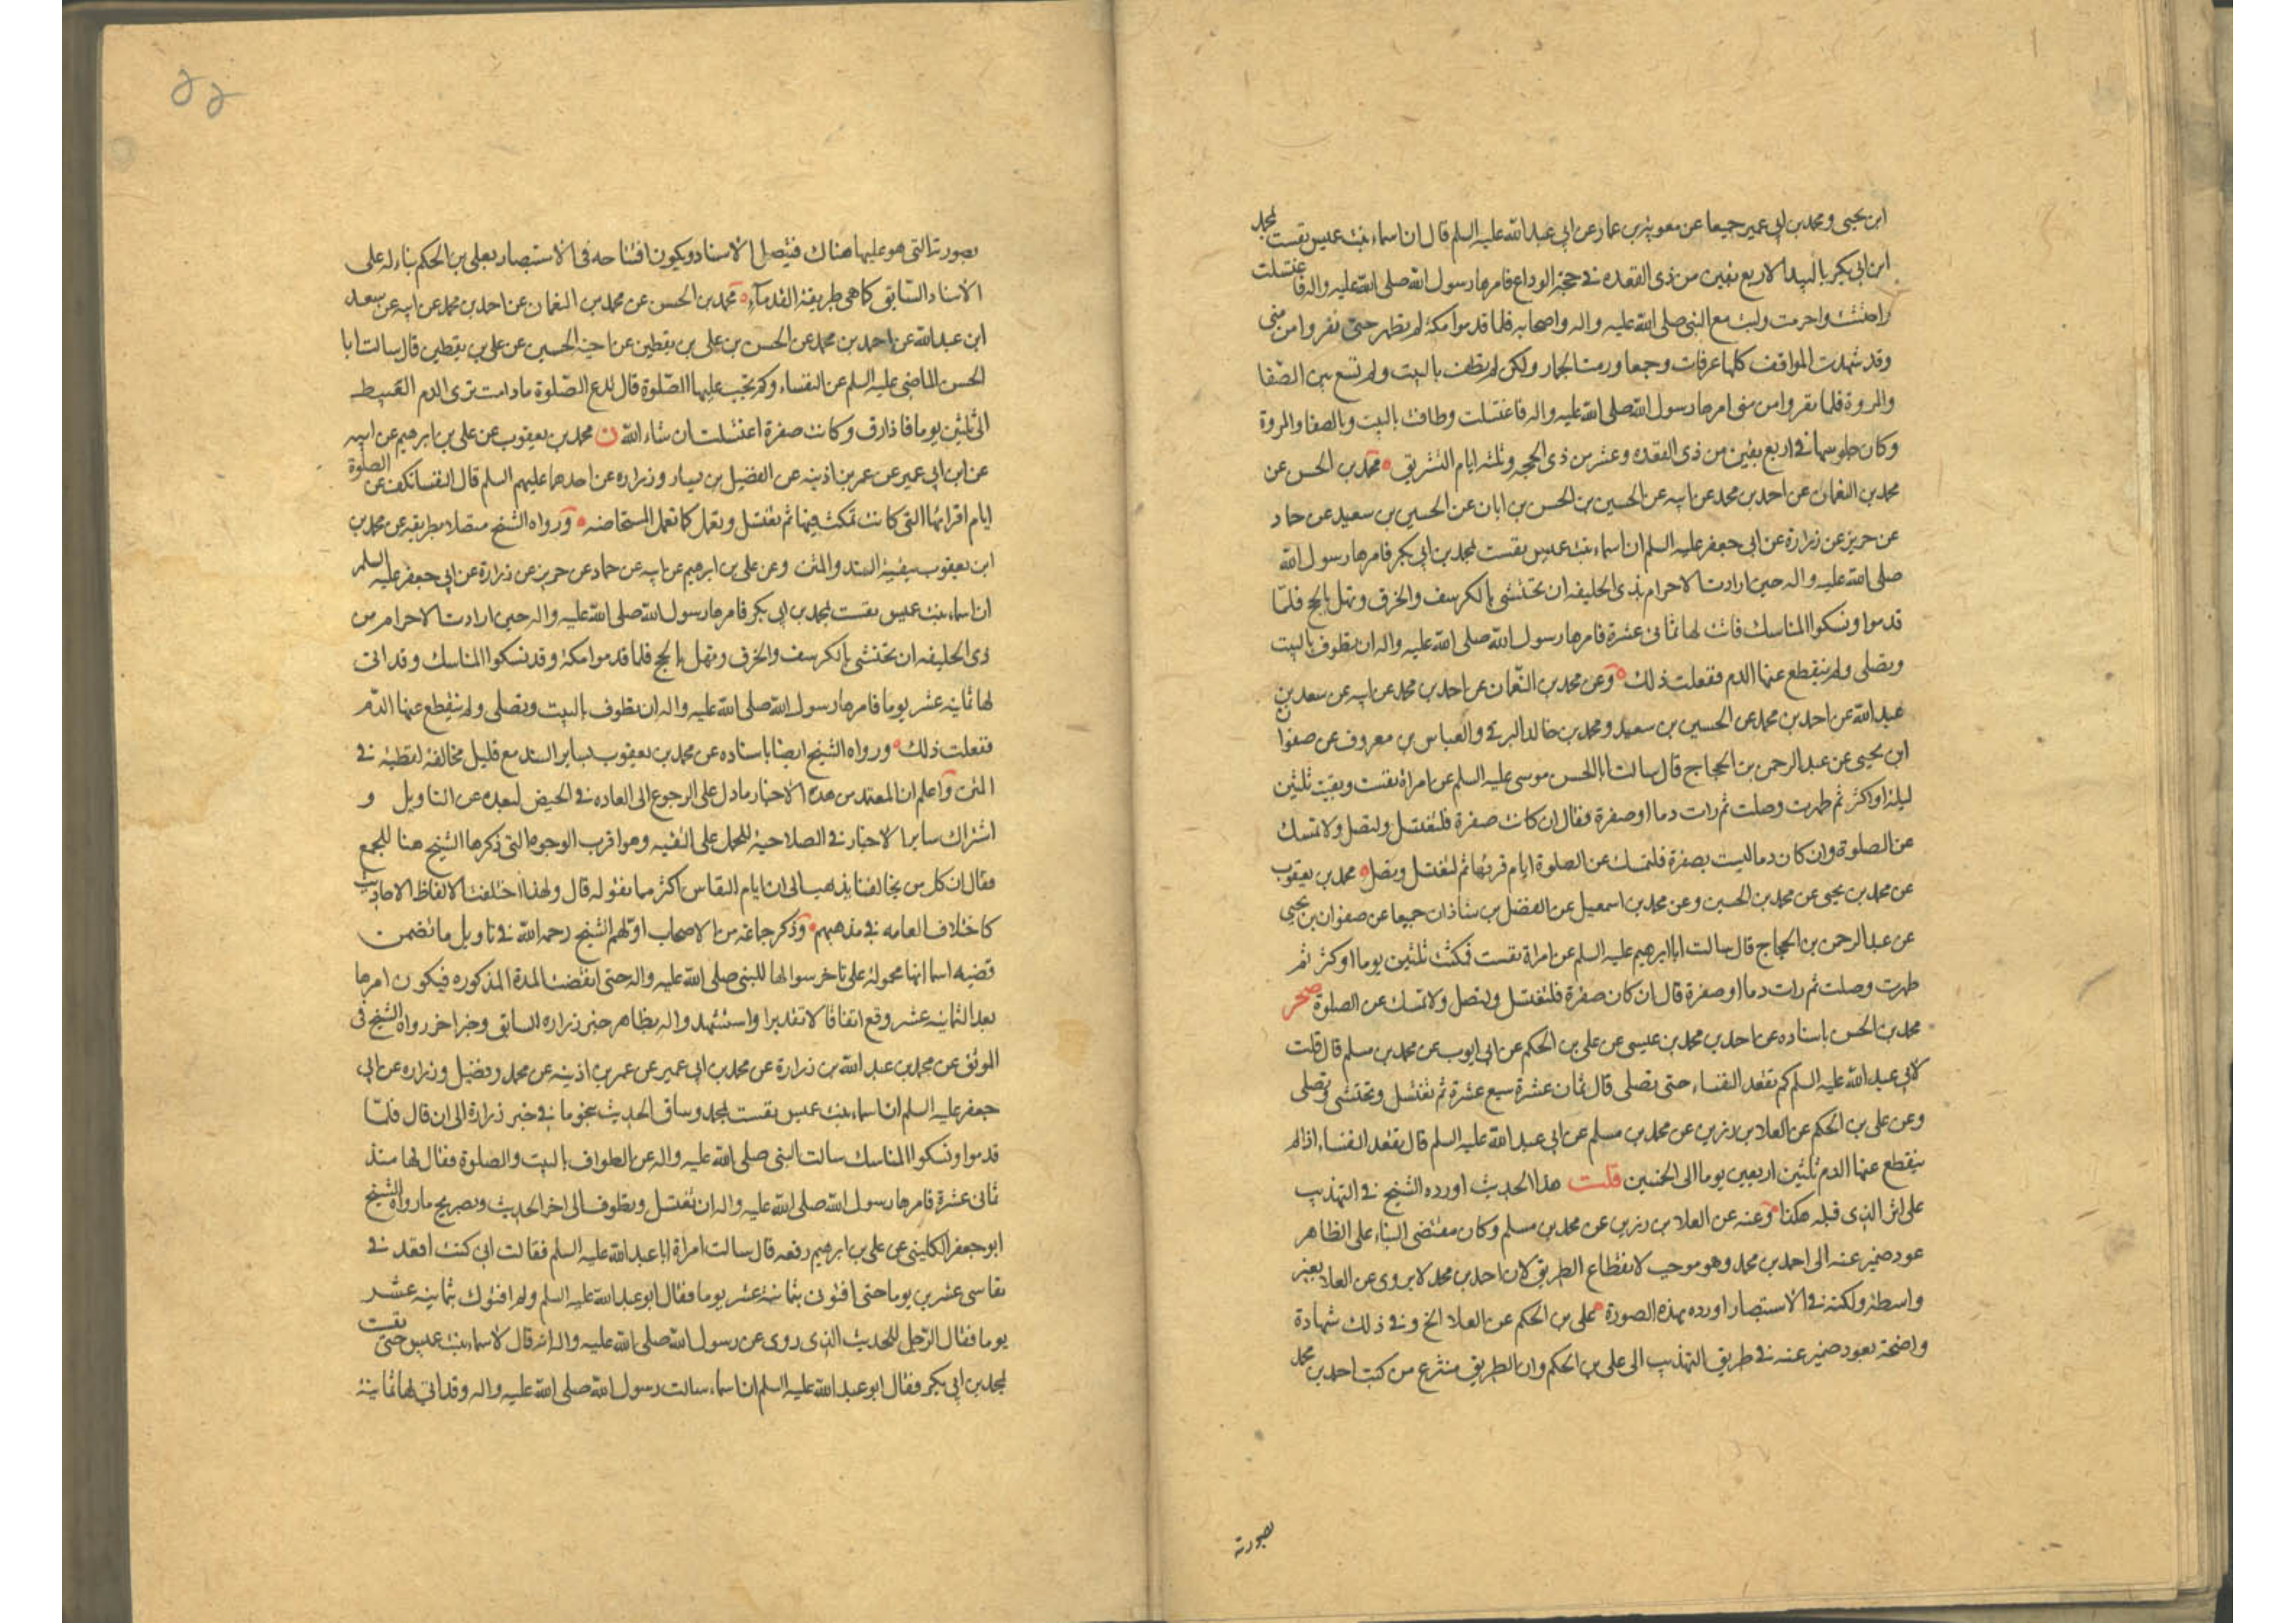 ابن يحيى ومحمد بن ابى عمير جميعا عن معوية بن عمار عن ابى عبد الله عليه السلم قال ان اسماء بنت عميس نفست بمحمد
ابن ابى بكر بالبيدا لاربع بقين من ذى القعده فى حجة الوداع فامرها رسول الله صلى الله عليه واله فاغتسلت
واحتشت واحرمت ولبت مع النبى صلى الله عليه واله واصحابه فلما قدموا مكة لم تطهر حتى نفروا من منى
وقد شهدت المواقف كلها عرفات وجمعا ورمت الجمار ولكن لم تطف بالبيت ولم تسع بين الصفا
والمروة فلما نفروا من منى امرها رسول الله صلى الله عليه واله فاغتسلت وطافت بالبيت وبالصفا والمروة
وكان جلوسها فى اربع بقين من ذى القعده وعشر من ذى الحجه وثلثه ايام التشريق ه محمد بن الحسن عن
محمد بن النعمان عن احمد بن محمد عن ابيه عن الحسين بن الحسن بن ابان عن الحسين بن سعيد عن حماد
عن حريز عن زرارة عن ابى جعفر عليه السلم ان اسماء بنت عميس نفست بمحمد بن ابى بكر فامرها رسول الله
صلى الله عليه واله حين ارادت الاحرام بذى الحليفه ان تحتشى بالكرسف والخرق وتهل بالحج فلما
قدموا ونسكوا المناسك فاتت لها ثمانى عشرة فامرها رسول الله صلى الله عليه واله ان تطوف بالبيت
وتصلى ولم ينقطع عنها الدم ففعلت ذلك ه وعن محمد بن النعمان عن احمد بن محمد عن ابيه عن سعد بن
عبد الله عن احمد بن محمد عن الحسين بن سعيد ومحمد بن خالد البرقى والعباس بن معروف عن صفوان
ابن يحيى عن عبد الرحمن بن الحجاج قال سالت ابا الحسن موسى عليه السلم عن امراة نفست وبقيت ثلثين
ليلة او اكثر ثم طهرت وصلت ثم رات دما او صفرة فقال ان كانت صفرة فلتغتسل ولتصل ولا تمسك
عن الصلوة وان كان دما ليست بصفرة فلتمسك عن الصلوة ايام قرئها ثم لتغتسل وتصل ه محمد بن يعقوب
عن محمد بن يحيى عن محمد بن الحسين وعن محمد بن اسمعيل عن الفضل بن شاذان جميعا عن صفوان بن يحيى
عن عبد الرحمن بن الحجاج قال سالت ابا ابرهيم عليه السلم عن امراة نفست فمكثت ثلثين يوما او كثر ثم
طهرت وصلت ثم رات دما او صفرة قال ان كان صفرة فلتغتسل ولتصل ولا تمسك عن الصلوة صحر
محمد بن الحسن باسناده عن احمد بن محمد بن عيسى عن على بن الحكم عن ابى ايوب عن محمد بن مسلم قال قلت
لابى عبد الله عليه السلم كم تقعد النفساء حتى تصلى قال ثمان عشرة سبع عشرة ثم تغتسل وتحتشى وتصلى
وعن على بن الحكم عن العلا بن رزين عن محمد بن مسلم عن ابى عبد الله عليه السلم قال تقعد النفساء اذا لم
ينقطع عنها الدم ثلثين اربعين يوما الى الخمسين قلت هذا الحديث اورده الشيخ فى التهذيب
على اثر الذى قبله هكذا وعنه عن العلا بن رزين عن محمد بن مسلم وكان مقتضى البناء على الظاهر
عود ضمير عنه الى احمد بن محمد وهو موجب لانقطاع الطريق لان احمد بن محمد لا يروى عن العلا بغير
واسطة ولكنه فى الاستبصار اورده بهذه الصورة على بن الحكم عن العلا الخ وفى ذلك شهادة
واضحة بعود ضمير عنه فى طريق التهذيب الى على بن الحكم وان الطريق منتزع من كتب احمد بن محمد
بصورته
بصورته التى هو عليها هناك فيتصل الاسناد ويكون افتتاحه فى الاستبصار بعلى بن الحكم بناء له على
الاسناد السابق كما هى طريقة القدماء ه محمد بن الحسن عن محمد بن النعمان عن احمد بن محمد عن ابيه عن سعد
ابن عبد الله عن احمد بن محمد عن الحسن بن على بن يقطين عن اخيه الحسين عن على بن يقطين قال سالت ابا
الحسن الماضى عليه السلم عن النفساء وكم تجب عليها الصلوة قال تدع الصلوة ما دامت ترى الدم العبيط
الى ثلثين يوما فاذا رق وكانت صفرة اغتسلت ان شاء الله ن محمد بن يعقوب عن على بن ابرهيم عن ابيه
عن ابن ابى عمير عن عمر بن اذينه عن الفضيل بن يسار وزراره عن احدهما عليهم السلم قال النفسا تكف عن الصلوة
ايام اقرائها التى كانت تمكث فيها ثم تغتسل وتعمل كما تعمل المستحاضه ورواه الشيخ متصلا بطريقه عن محمد بن
ابن يعقوب ببقية السند والمتن وعن على بن ابرهيم عن ابيه عن حماد عن حريز عن زرارة عن ابى جعفر عليه السلم
ان اسماء بنت عميس نفست بمحمد بن ابى بكر فامرها رسول الله صلى الله عليه واله حين ارادت الاحرام من
ذى الحليفه ان تحتشى بالكرسف والخرق وتهل بالحج فلما قدموا مكة وقد نسكوا المناسك وقد اتى
لها ثمانية عشر يوما فامرها رسول الله صلى الله عليه واله ان تطوف بالبيت وتصلى ولم ينقطع عنها الدم
ففعلت ذلك ورواه الشيخ ايضا باسناده عن محمد بن يعقوب بساير السند مع قليل مخالفة لفظية فى
المتن واعلم ان المعتمد من هذه الاخبار ما دل على الرجوع الى العاده فى الحيض لبعده عن التاويل و
اشتراك ساير الاخبار فى الصلاحية للحمل على التقيه وهو اقرب الوجوه التى ذكرها الشيخ هنا للجمع
فقال ان كل من يخالفنا يذهب الى ان ايام النفاس اكثر مما نقوله قال ولهذا اختلفت الالفاظ الاحاديث
كاختلاف العامه فى مذهبهم وذكر جماعة من الاصحاب اولهم الشيخ رحمه الله فى تاويل ما تضمن
قضيه اسما انها محمولة على تاخر سوالها للنبى صلى الله عليه واله حتى انقضت المدة المذكوره فيكون امرها
بعد الثمانية عشر وقع اتفاقا لا تقديرا واستشهد واله بظاهر خبر زراره السابق وخبر اخر رواه الشيخ فى
الموثق عن محمد بن عبد الله بن زرارة عن محمد بن ابى عمير عن عمر بن اذينه عن محمد وفضيل وزراره عن ابى
جعفر عليه السلم ان اسماء بنت عميس نفست بمحمد وساق الحديث بنحو ما فى خبر زرارة الى ان قال فلما
قدموا ونسكوا المناسك سالت النبى صلى الله عليه واله عن الطواف بالبيت والصلوة فقال لها منذ
ثمانى عشرة فامرها رسول الله صلى الله عليه واله ان تغتسل وتطوف الى اخر الحديث وبصريح ما رواه الشيخ
ابو جعفر الكلينى عن على بن ابرهيم رفعه قال سالت امراة ابا عبد الله عليه السلم فقالت انى كنت اقعد فى
نفاسى عشرين يوما حتى افتون بثمانية عشر يوما فقال ابو عبد الله عليه السلم ولم افتوك بثمانية عشر
يوما فقال الرجل للحديث الذى روى عن رسول الله صلى الله عليه واله انه قال لاسماء بنت عميس حتى نفست
بمحمد بن ابى بكر فقال ابو عبد الله عليه السلم ان اسماء سالت رسول الله صلى الله عليه واله وقد اتى لها ثمانية